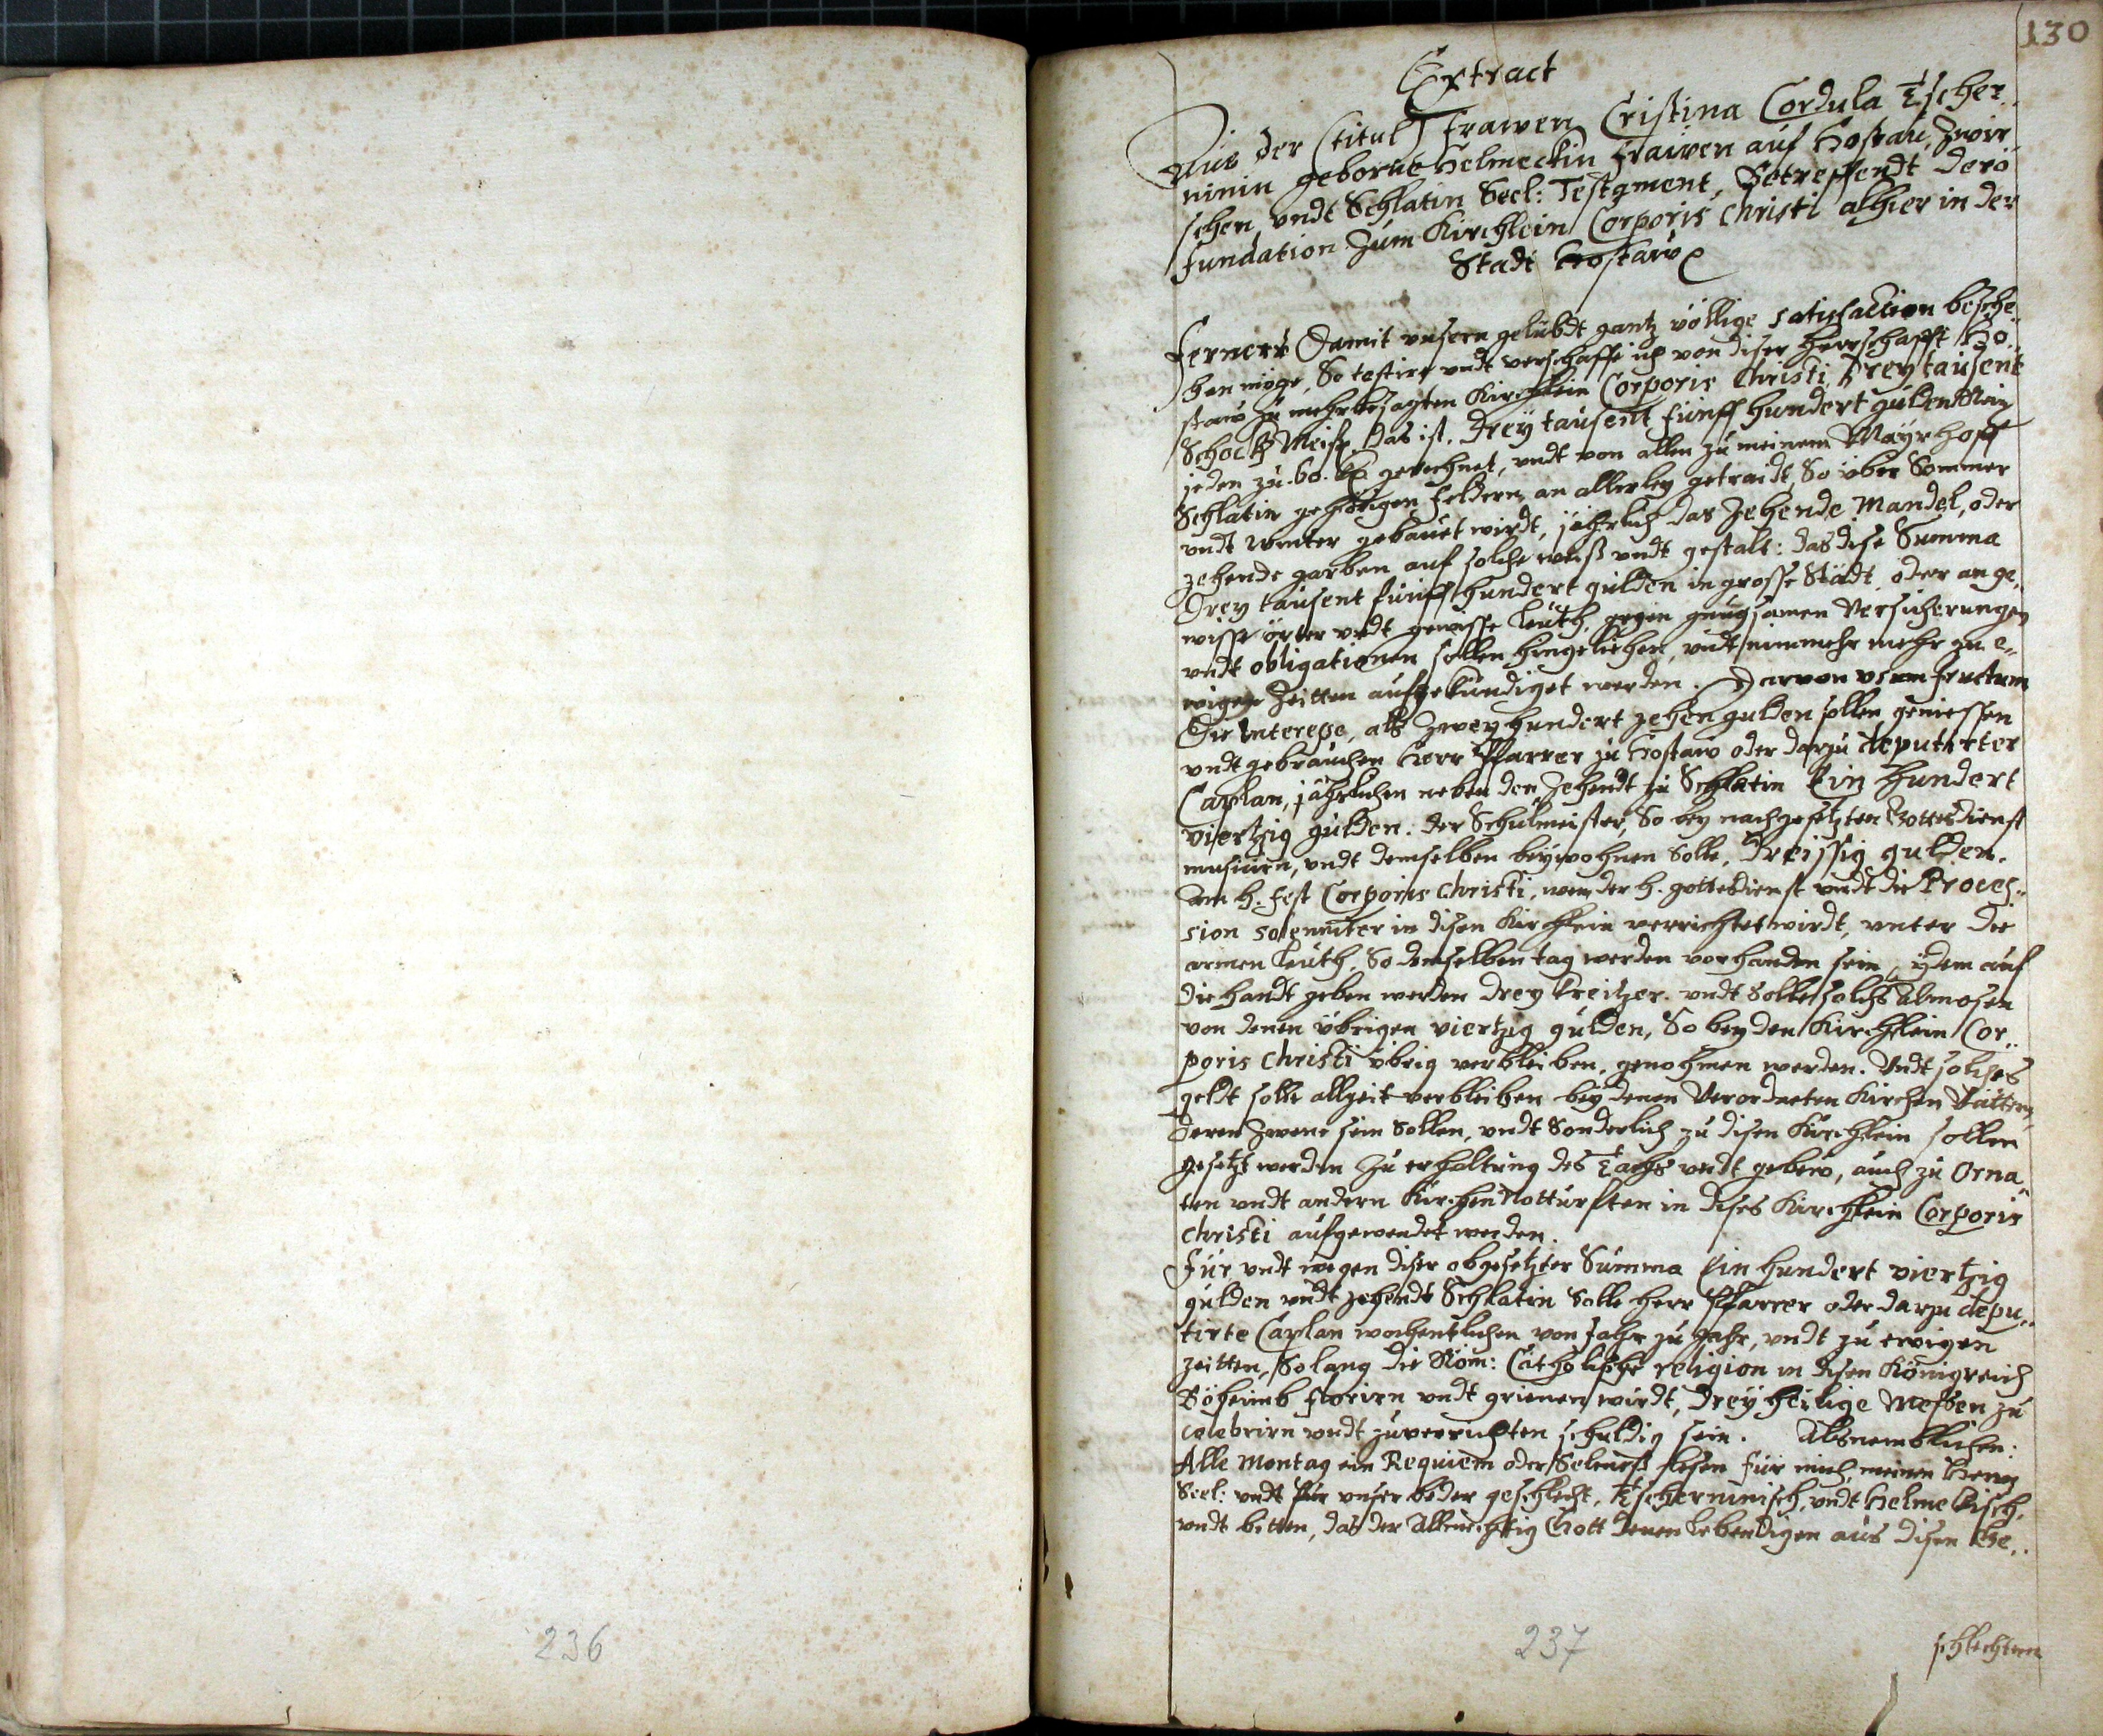 130
Extract
Aus der (titul) Frawen Cristina Cordula Tscher..
ninin geborne Helmeckin Frawen auf Hostau, Zwir,
schen, undt Schlatin Seel: Testament, Betreffendt dero
Fundation Zum Kirchlein Corporis Christi alhier in der
Stadt Hostaw
Ferners damit unsern gelübdt gantz völlige satisfaction besche..
hen möge, So testire undt verschaffe ich von diser Herrschafft Ho..
staw zu mehrbesagten Kirchlein Corporis Christi, Drey tausent
Schock Meisß. das ist, drey tausent fünff hundert gulden Rein
jeden zu .60. kr. gerechnet, undt von allen zu meinem Mayrhoff
Schlatin gehörigen Feldern an allerley getraidt, So über Sommer
undt Winter gebauet wirdt, jährlich das Zehende Mandel, oder
zehende garben auf solche weiß undt gestalt: das dise Summa
Drey tausent fünff hundert gulden in grosse Städt, oder an ge..
wisse örter undt gewisse Leuth, gegen gnugsamen Versicherungen
undt obligationen sollen hingeliehen, undt nimmehr mehr zu e..
wigen Zeitten aufgekündiget werden. Darvon usum fructum
Die Interesse, als zwey hundert zehen gulden sollen geniessen
undt gebrauchen Herr Pfarrer zu Hostaw oder darzu deputirter
Caplan, jährlichen neben den Zehendt zu Schlatin Ein hundert
viertzig gulden. der Schulmeister, So bey nachgesetzten Gottesdienst
musiciern, undt demselben beywohnen Solle, Dreissig gulden.
Am H. Fest Corporis Christi, wen der H. gottesdienst undt die Proces..
sion solenniter in disen Kirchlein verrichtet wirdt, unter die
armen Leuth, So demselben tag werden vorhanden sein, ydem auf
die handt geben werden drey Kreitzer. undt Solle solchs Almosen
von denen übrigen viertzig gulden, So bey den Kirchlein Cor..
poris Christi übrig verbleiben, genohmen werden. Undt solches
geldt solle allzeit verbleiben bey denen Verordneten Kirchen Vättern,
deren Zwene sein Sollen, undt Sonderlich zu disen Kirchlein sollen
gesetzt werden Zu erhaltung des Tachs undt gebew, auch zu Orna..
ten undt andern Kirchen Notturften in dises Kirchlein Corporis
Christi aufgewendet werden.
Für undt wegen diser obgesetzter Summa Ein hundert viertzig
gulden undt zehendt Schlatin Solle Herr Pfarrer oder darzu depu..
tirte Caplan wochentlichen von Jahr zu Jahr, undt zu ewigen
Zeitten, Solang die Röm: Catholische religion in disen Königreich
Böheimb florirn undt grienen wirdt, Drey heilige Messen zu
celebrirn undt zuverrichten schuldig sein. Alsnemblichen:
Alle Montag ein Requiem oder Seelmeß lesen für mich, meinen Herrn
Seel: undt für unser beder geschlecht, Tscherninisch, undt Helmekisch,
undt bitten, das der Allmechtig Gott denen Lebendigen aus disen Ge..
schlechtern
236
237